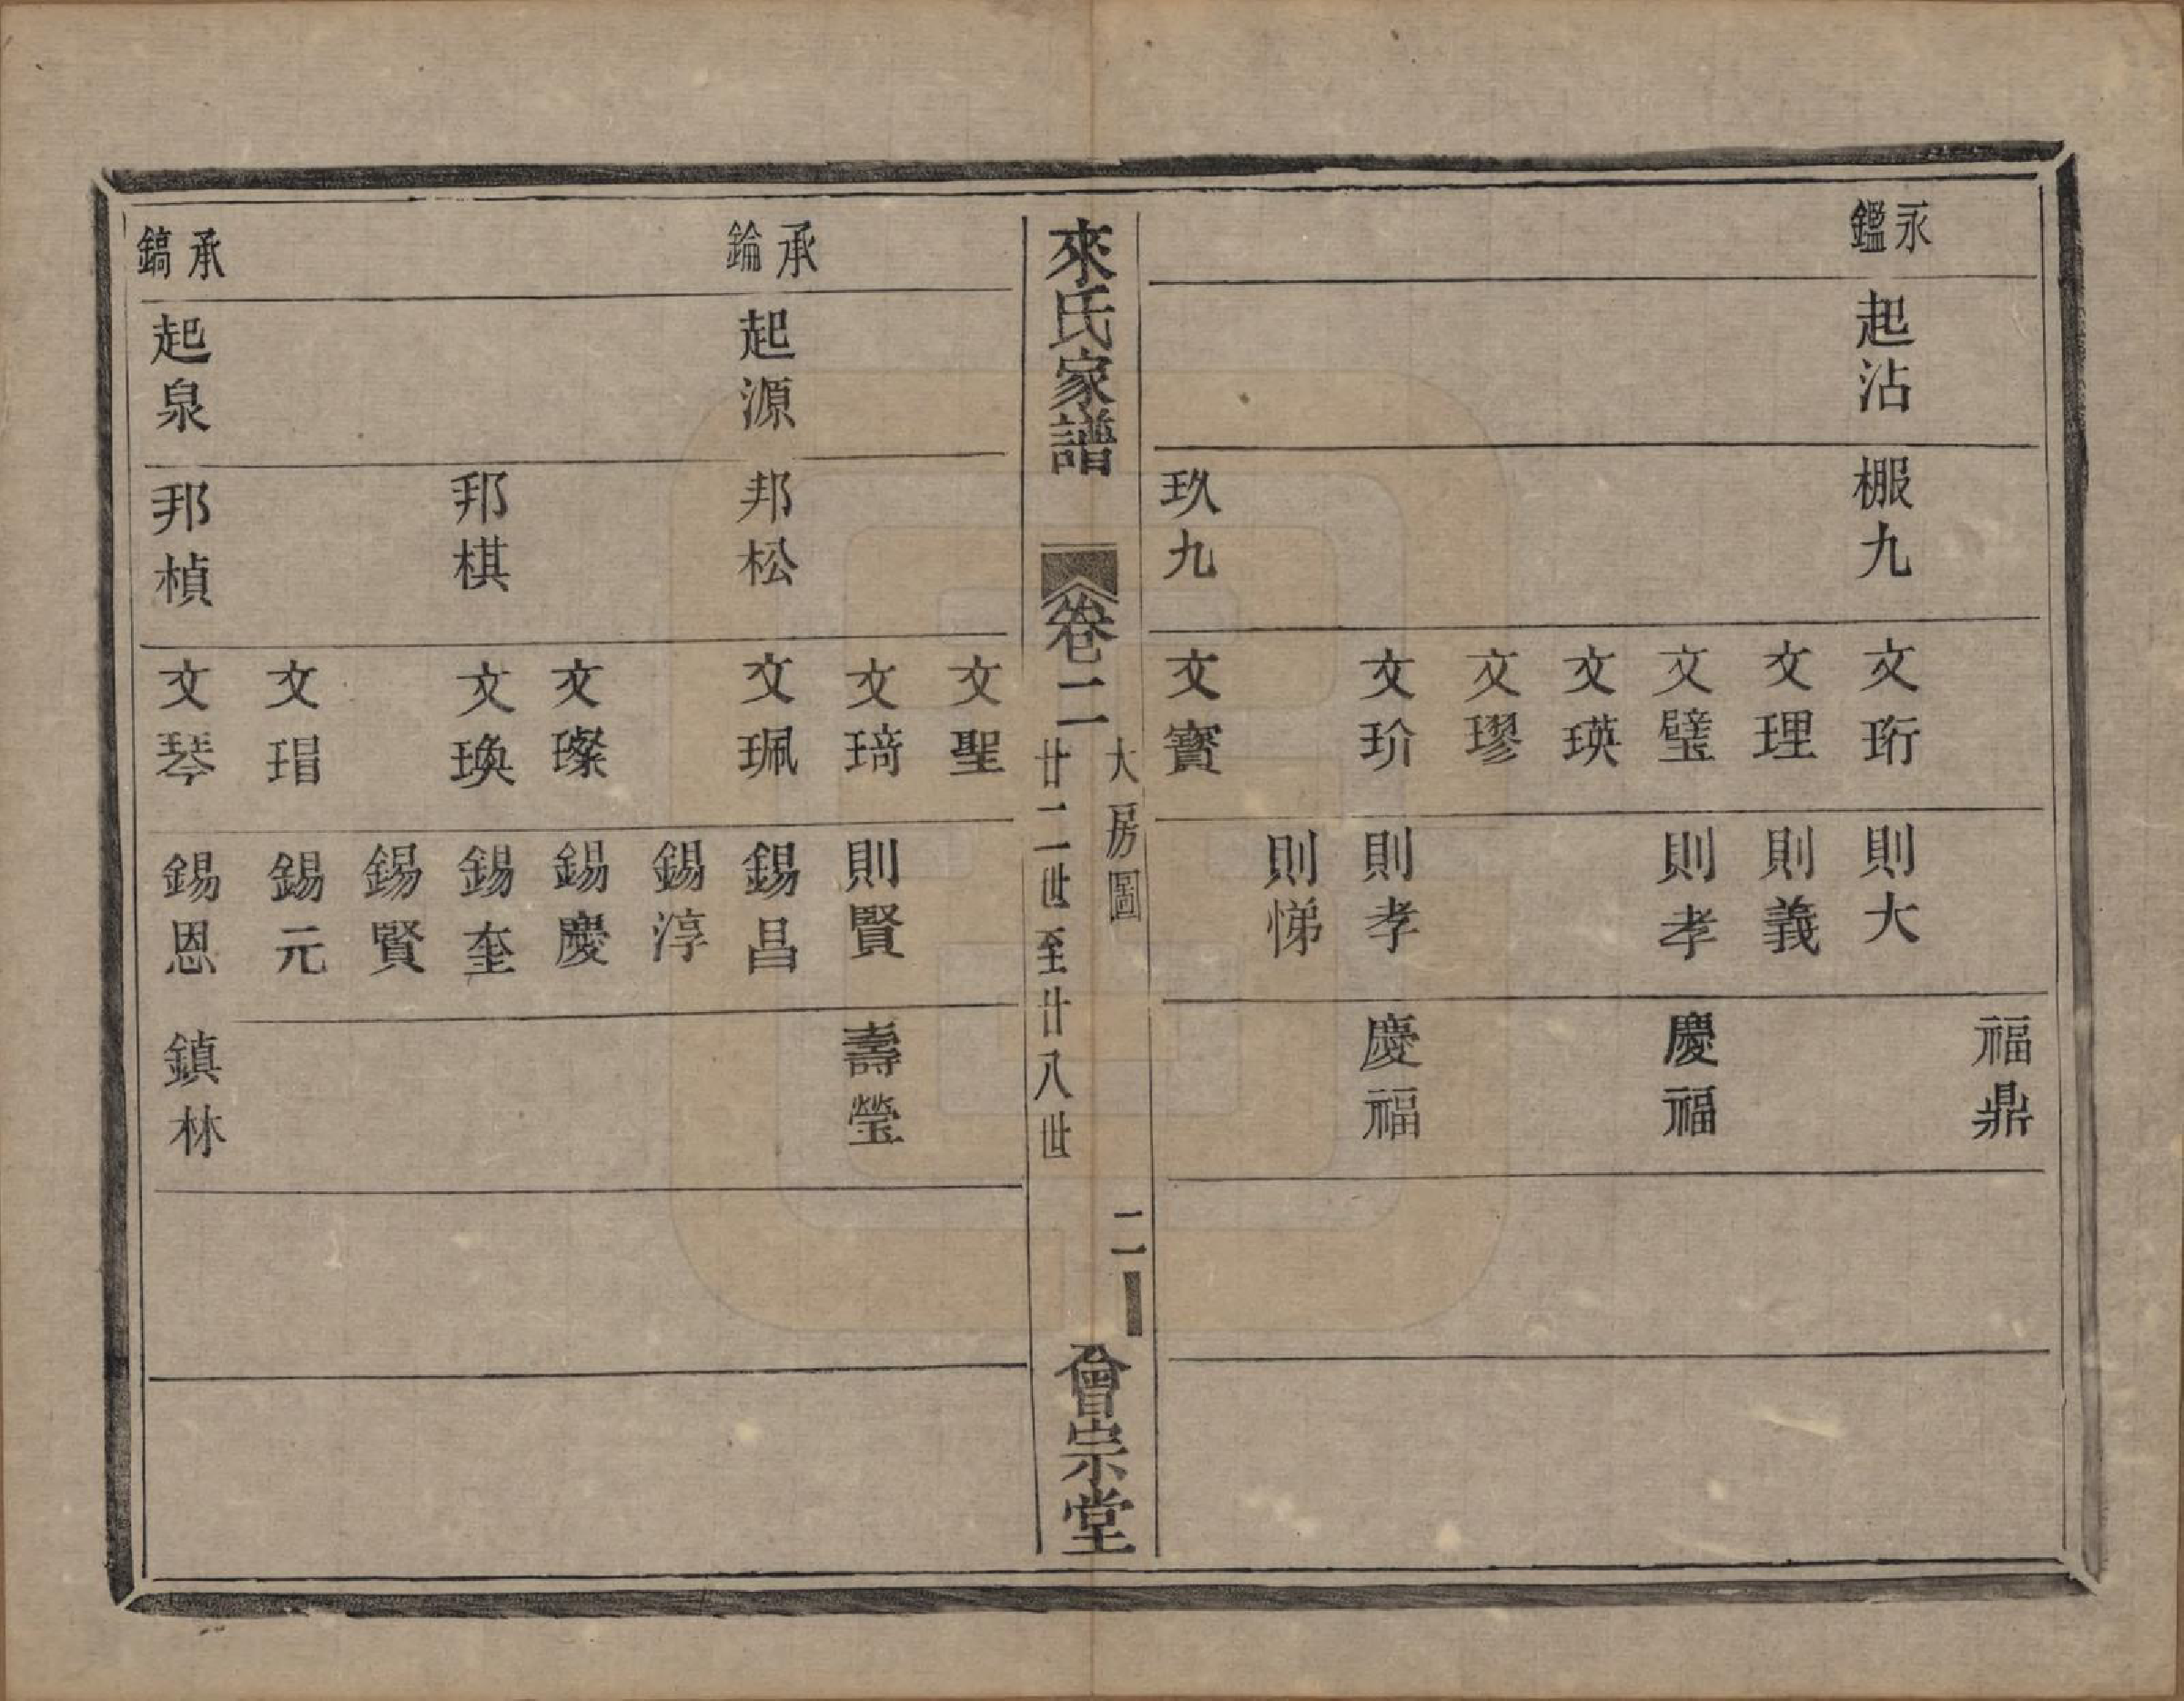 永鑑
起沾
棴九
玖九
文珩
文理
文璧
文瑛
文璆
文玠
文寶
則大
則義
則孝
則孝
則悌
福鼎
慶福
慶福
來氏家譜
卷二
大房圖
廿二世至廿八世
二
會宗堂
承錀
承鎬
起源
起泉
邦松
邦棋
邦楨
文聖
文琦
文珮
文璨
文瑍
文瑁
文琴
則賢
錫昌
錫淳
錫慶
錫奎
錫賢
錫元
錫恩
壽瑩
鎮林